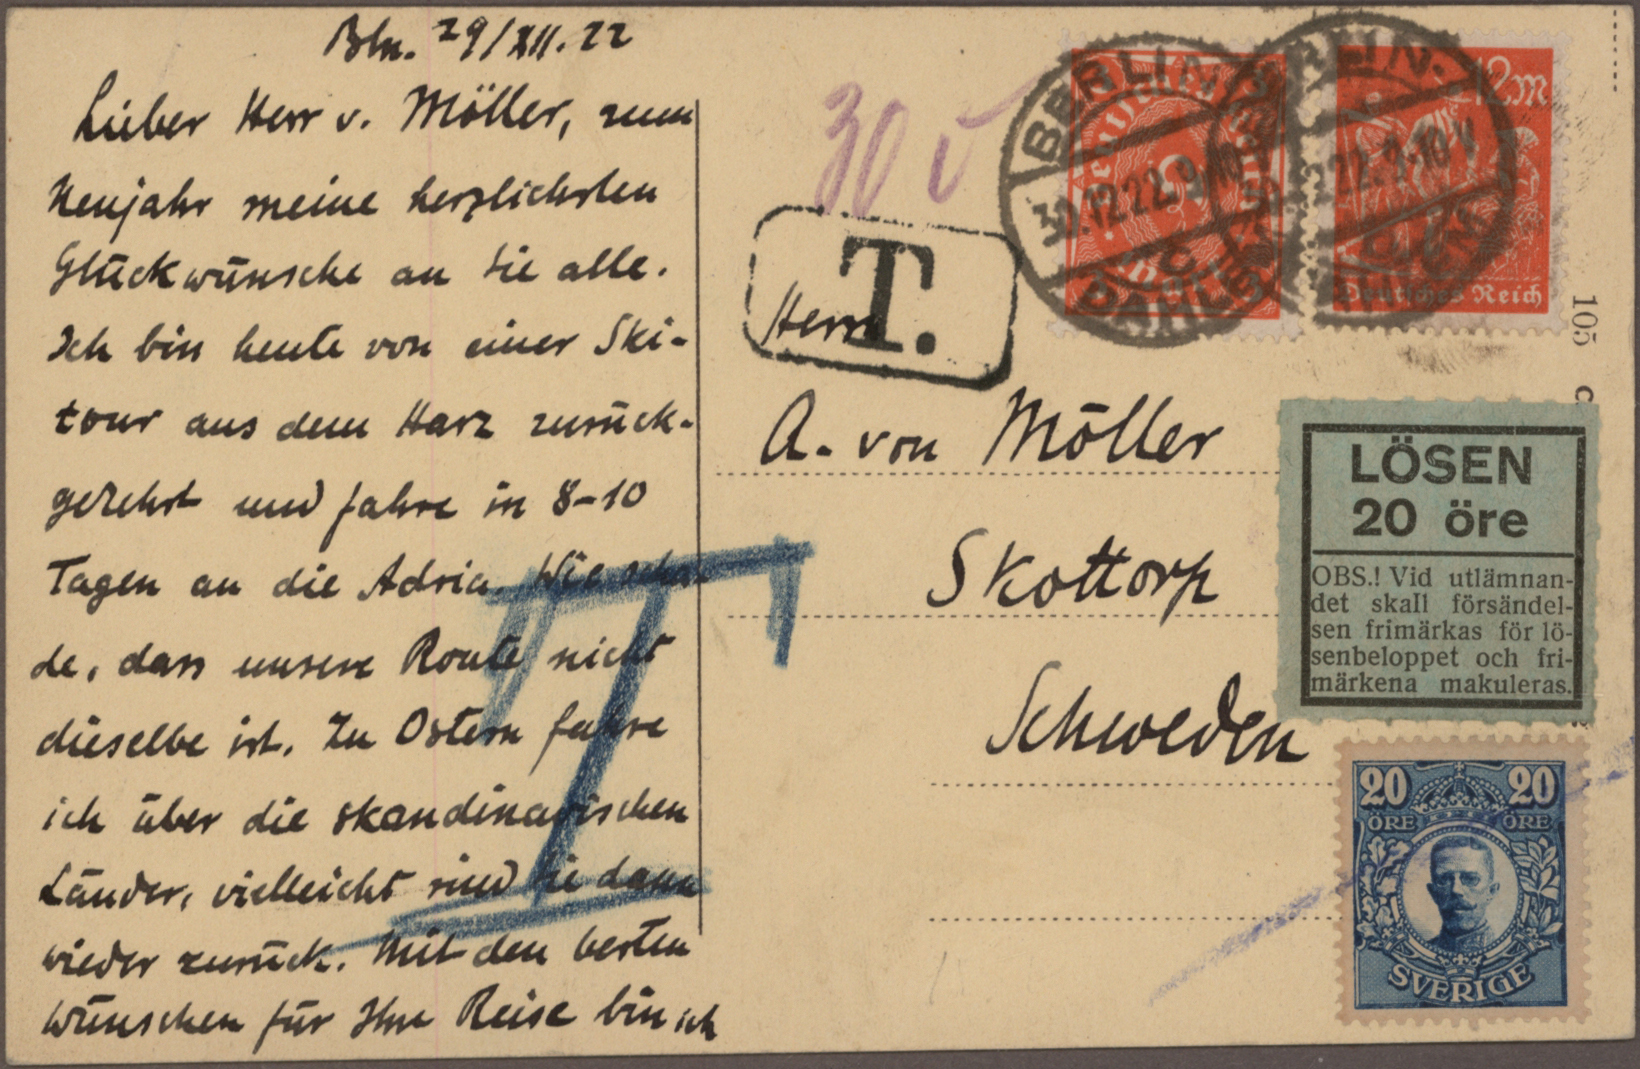 Bln. 29/XII. 22
Lieber Herr v. Möller, zum
Neujahr meine herzlichsten
Glückwünsche an Sie alle.
Ich bin heute von einer Ski-
tour aus dem Harz zurück-
gekehrt und fahre in 8-10
Tagen an die Adria. Wie scha-
de, dass unsere Route nicht
dieselbe ist. Zu Ostern fahre
ich über die skandinavischen
Länder, vielleicht sind Sie dann
wieder zurück. Mit den besten
Wünschen für Ihre Reise bin ich
30
T.
BERLIN
30.12.22.9-10V
C
DAHLEM
12M
Deutsches Reich
105
C
Herrn
A. von Möller
Skottorp
Schweden
T
LÖSEN
20 öre
OBS.! Vid utlämnan-
det skall försändel-
sen frimärkas för lö-
senbeloppet och fri-
märkena makuleras.
20 20
ÖRE ÖRE
SVERIGE